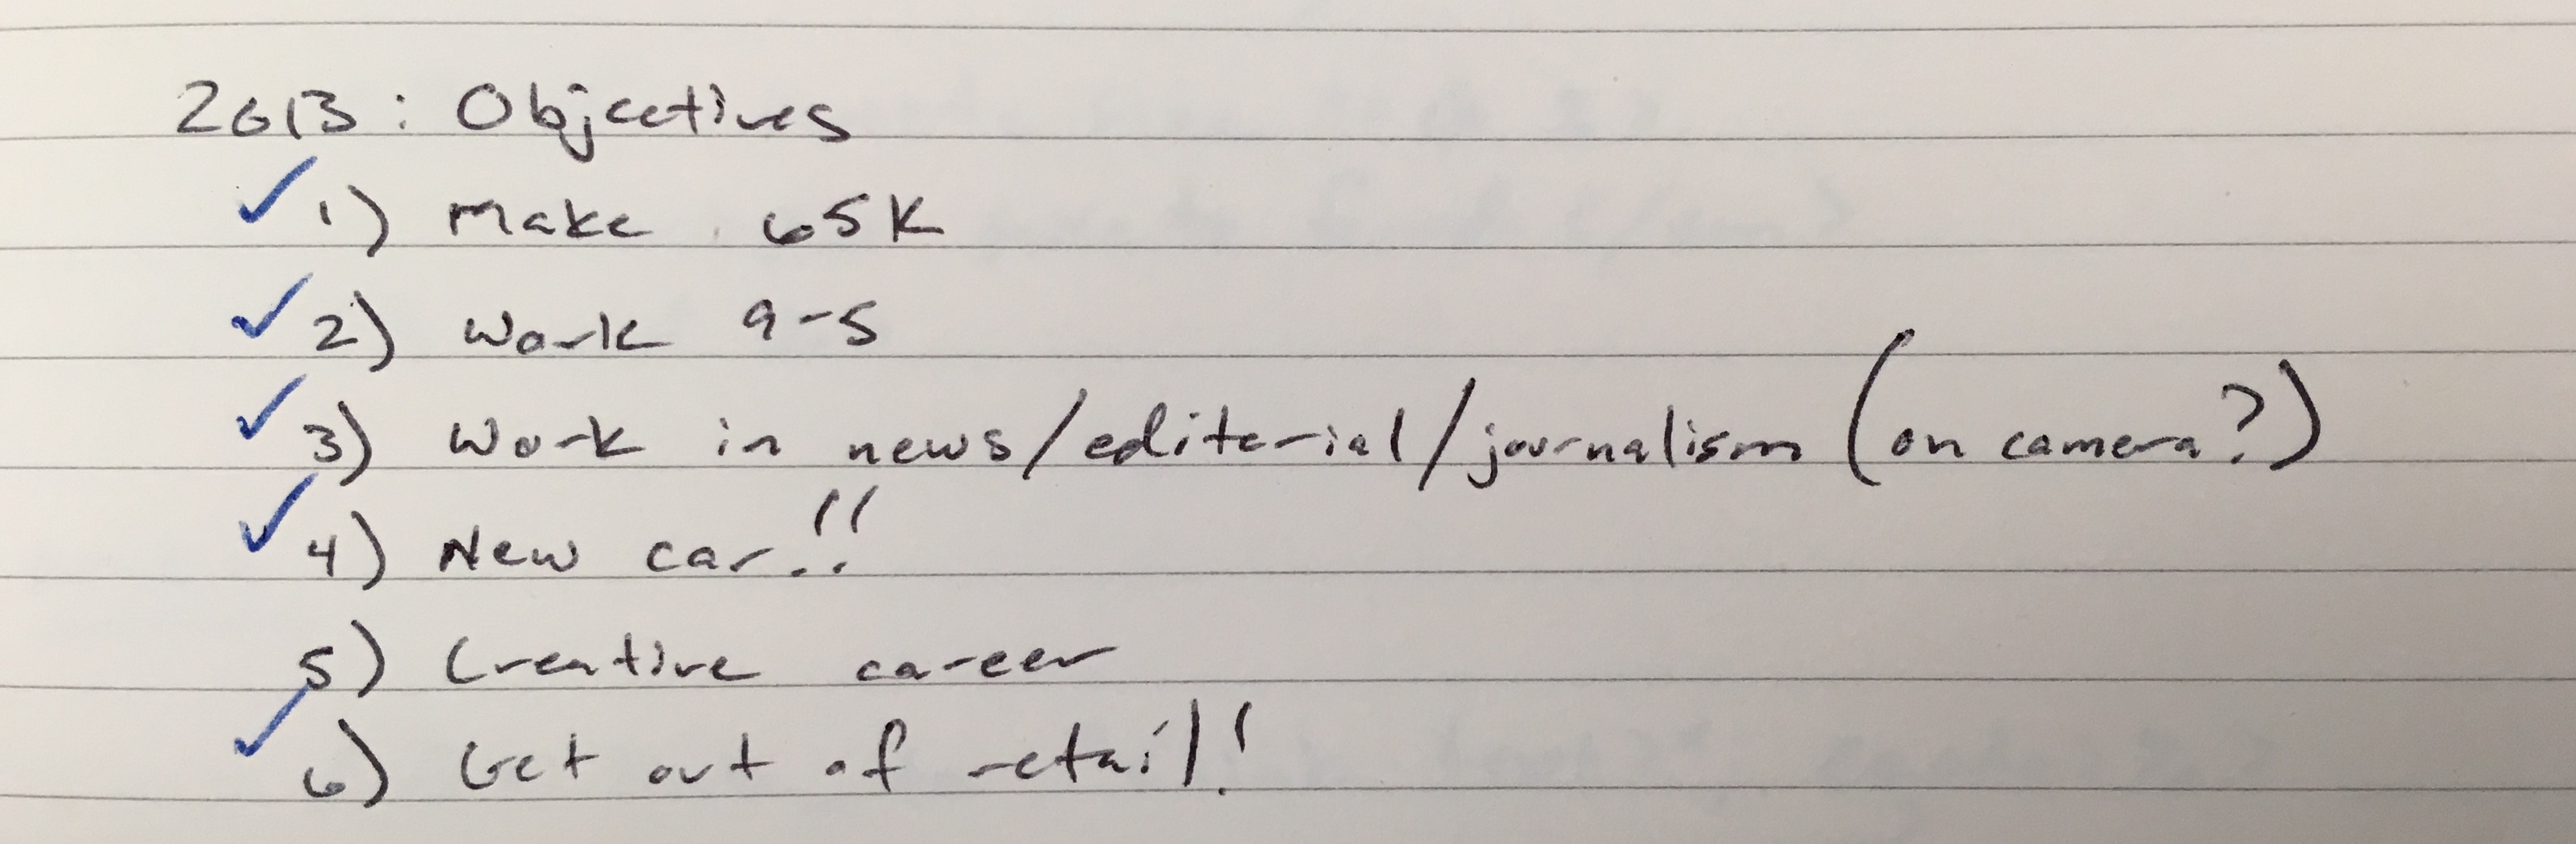 2013: Objectives
✓ 1) Make 65K
✓ 2) Work 9-5
✓ 3) Work in news/editorial/journalism (on camera?)
✓ 4) New car!!
5) Creative career
✓ 6) Get out of retail!